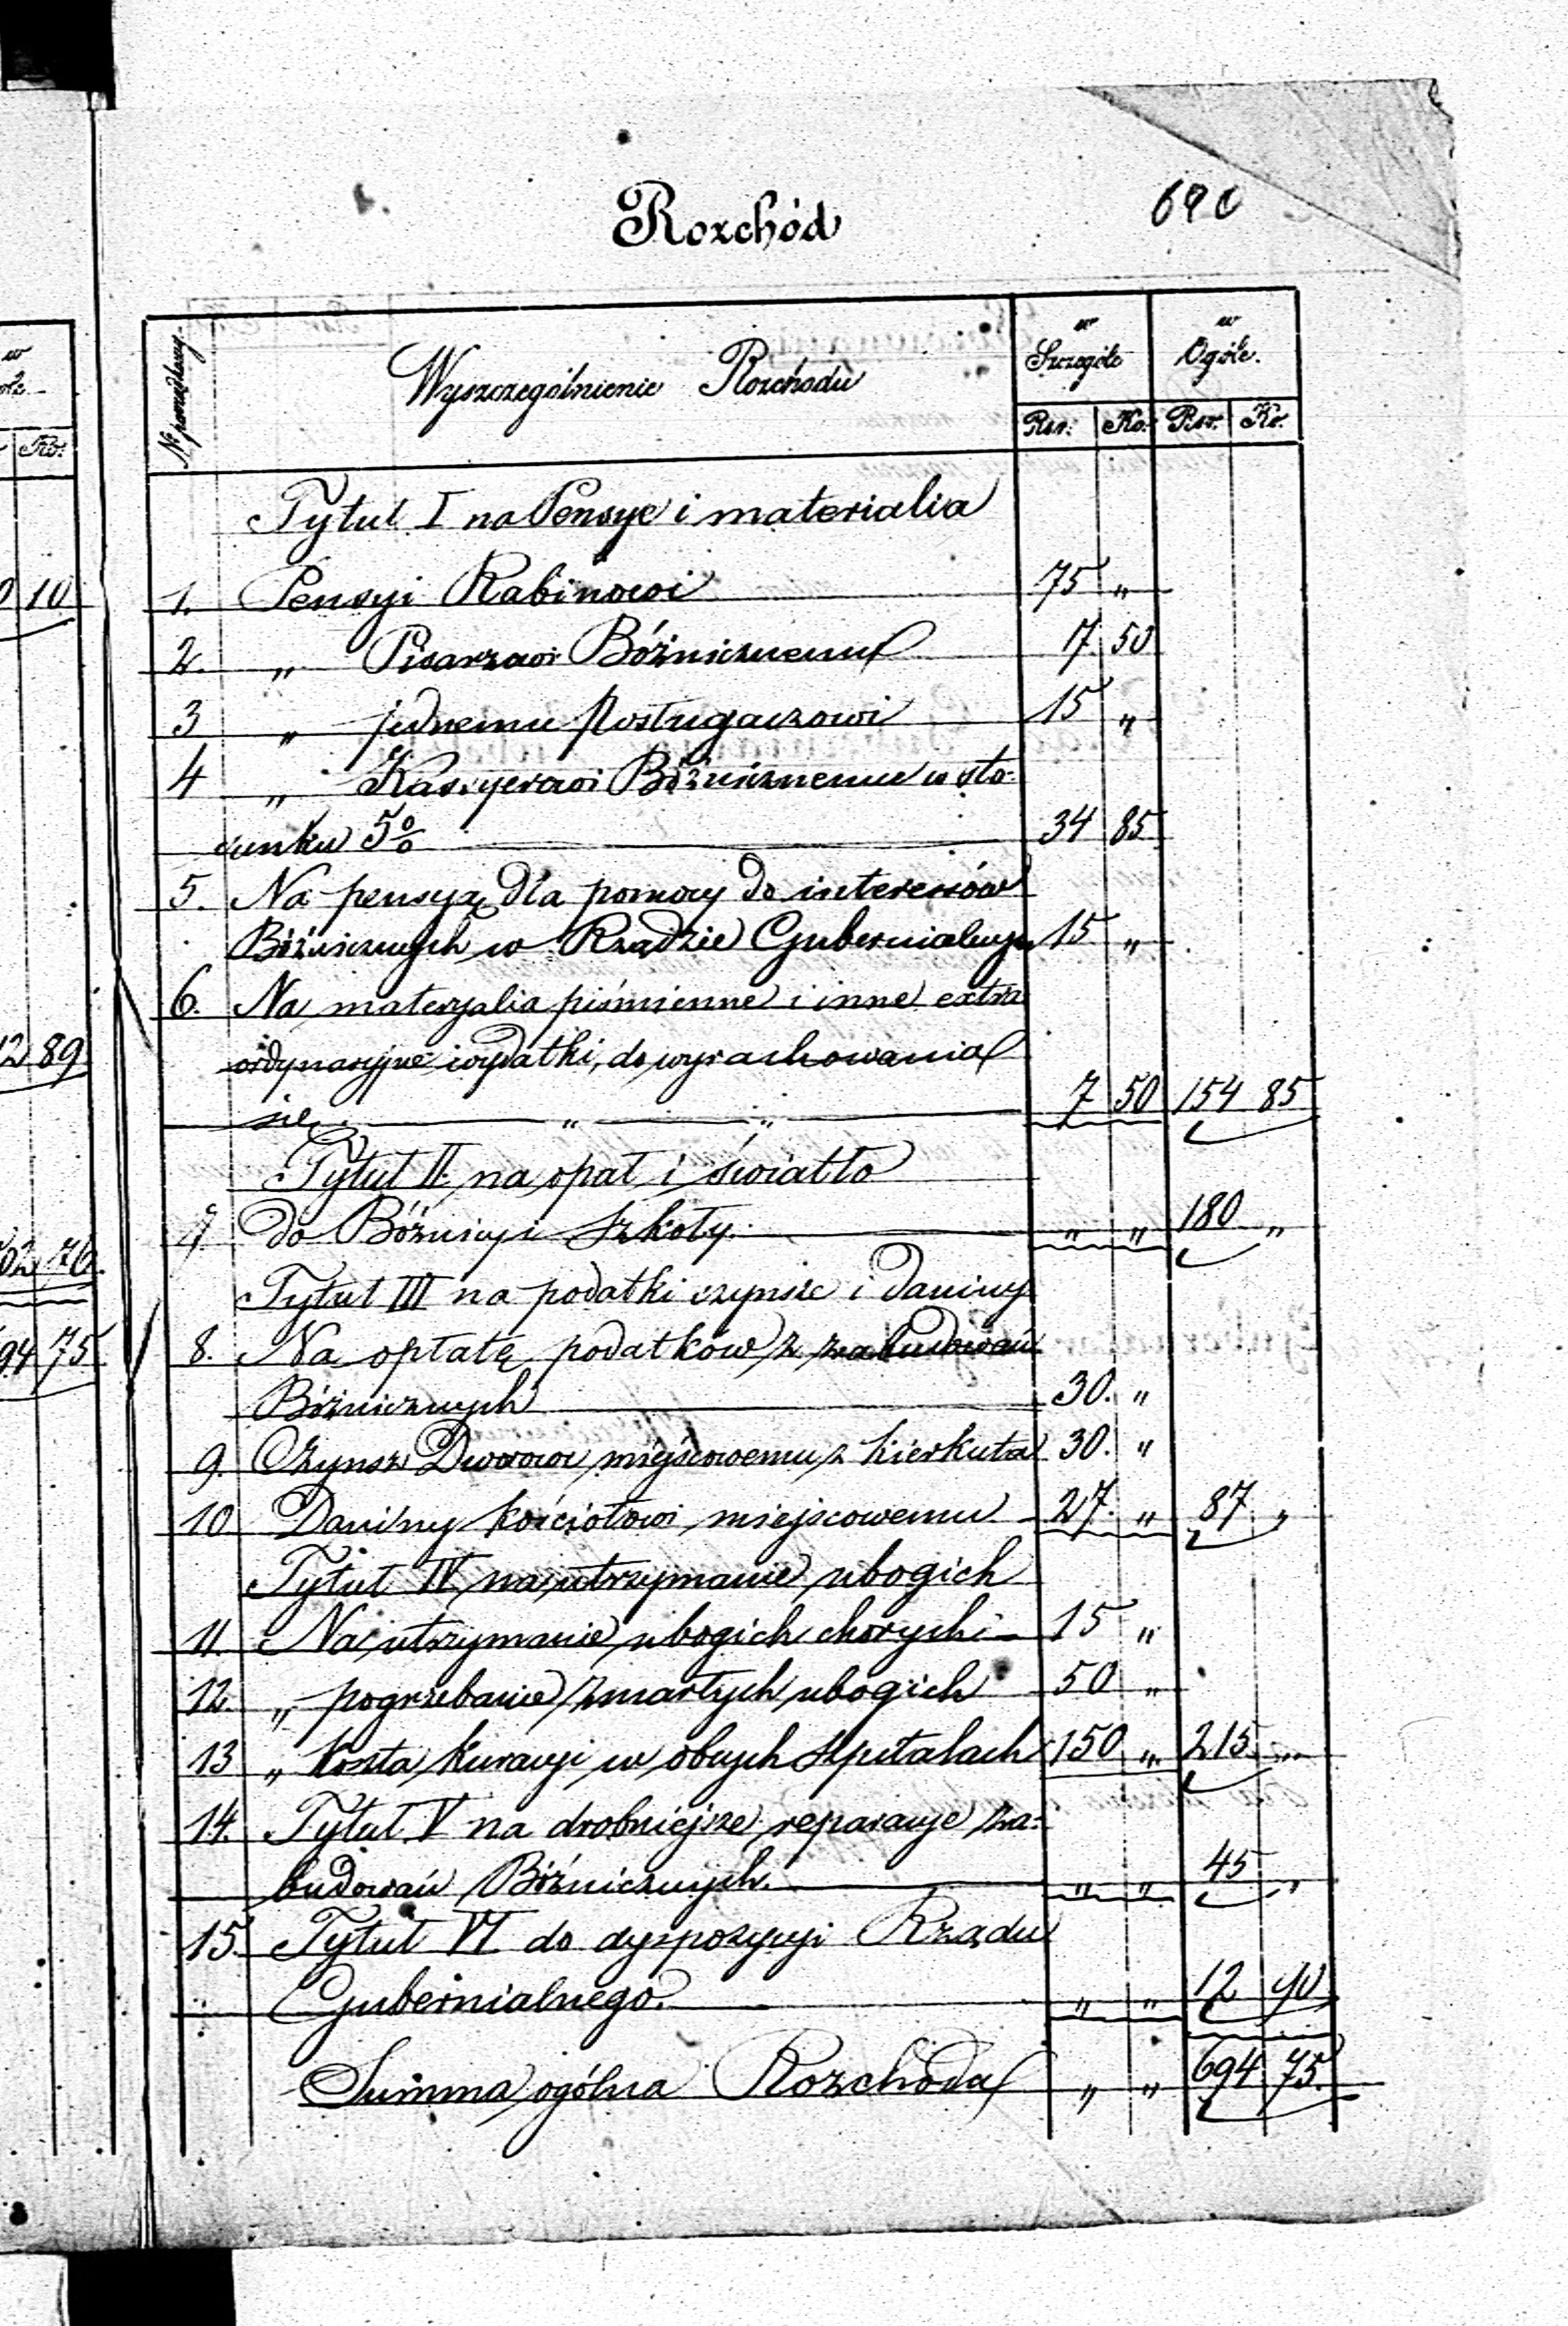 690
Rozchód
w
Ko.
10
12 89
02 76
94 75
№ porządkowy
Wyszczególnienie Rozchodu
w Szczególe
w Ogóle.
Rsr. Ko. Rsr. Ko.
Tytuł I na Pensye i materialia
1. Pensyi Rabinowi 75 "
2. " Pisarzowi Bóżnicznemu 7 50
3 " jednemu Posługaczowi 15 "
4 " Kassyerowi Bóżnicznemu w sto-
sunku 5% 34 85
5. Na pensyą dla pomocy do interessów
Bóżnicznych w Rządzie Gubernialnym 15 "
6. Na materyalia piśmienne i inne extra
ordynaryjne wydatki, do wyrachowania
się " " 7 50 154 85
Tytuł II na opał i światło
7 do Bóżnicy i Szkoły. " " 180 "
Tytuł III na podatki czynsze i Daniny
8. Na opłatę podatków z zabudowań
Bóżnicznych 30. "
9. Czynsz Dworowi miejscowemu z kierkuta 30. "
10 Daniny kościołowi miejscowemu 27. " 87 "
Tytuł IV na utrzymanie ubogich
11. Na utrzymanie ubogich chorych 15 "
12. " pogrzebanie zmarłych ubogich 50 "
13 " koszta kuracyi w obcych szpitalach 150 " 215 "
14. Tytuł V na drobniejsze reparacye za-
budowań Bóżnicznych. " " 45 "
15. Tytuł VI do dyspozycyi Rządu
Gubernialnego. " " 12 90
Summa ogólna Rozchodu " " 694 75.